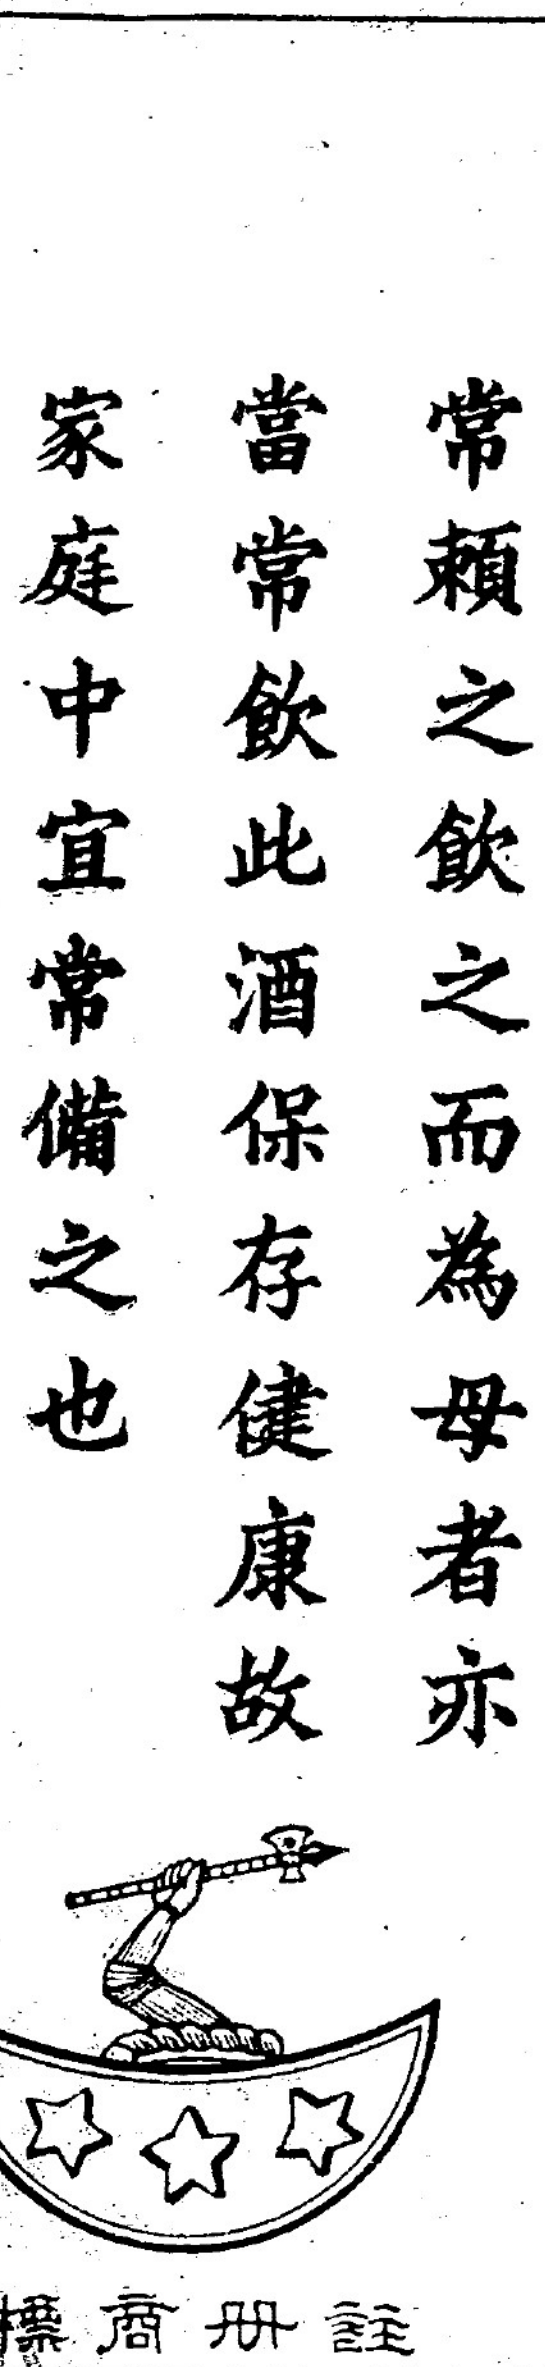 常賴之飲之而為母者亦
當常飲此酒保存健康故
家庭中宜常備之也
註册商標